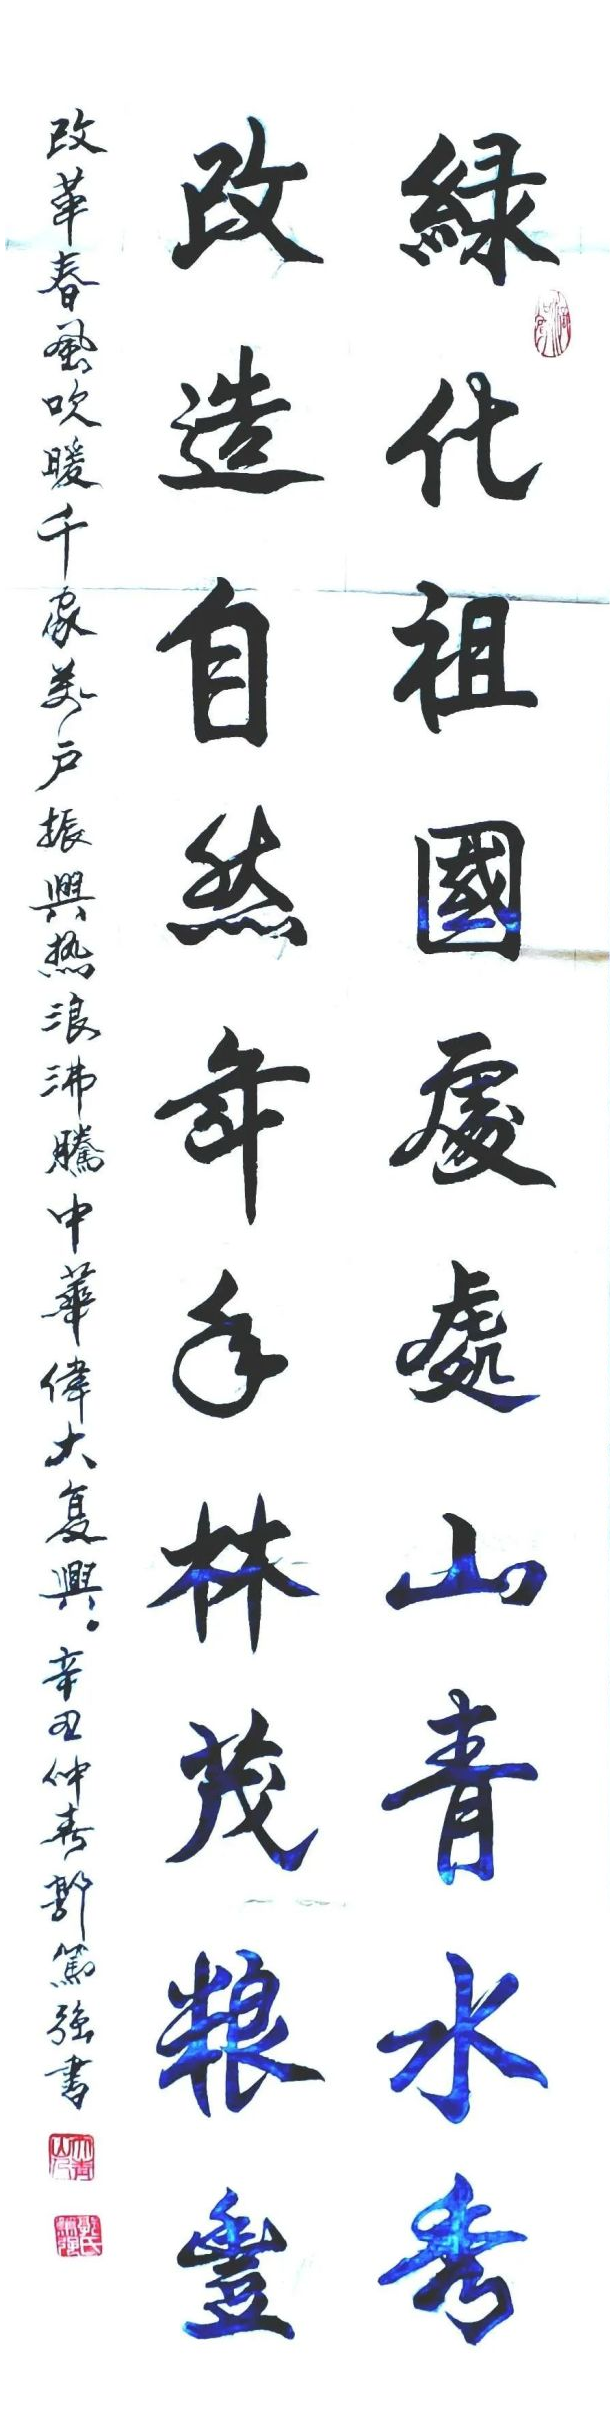 緑化祖國處處山青水秀
改造自然年年林茂粮豐
改革春風吹暖千家萬户振興热浪沸騰中華偉大复興。辛丑仲春郭篤強書